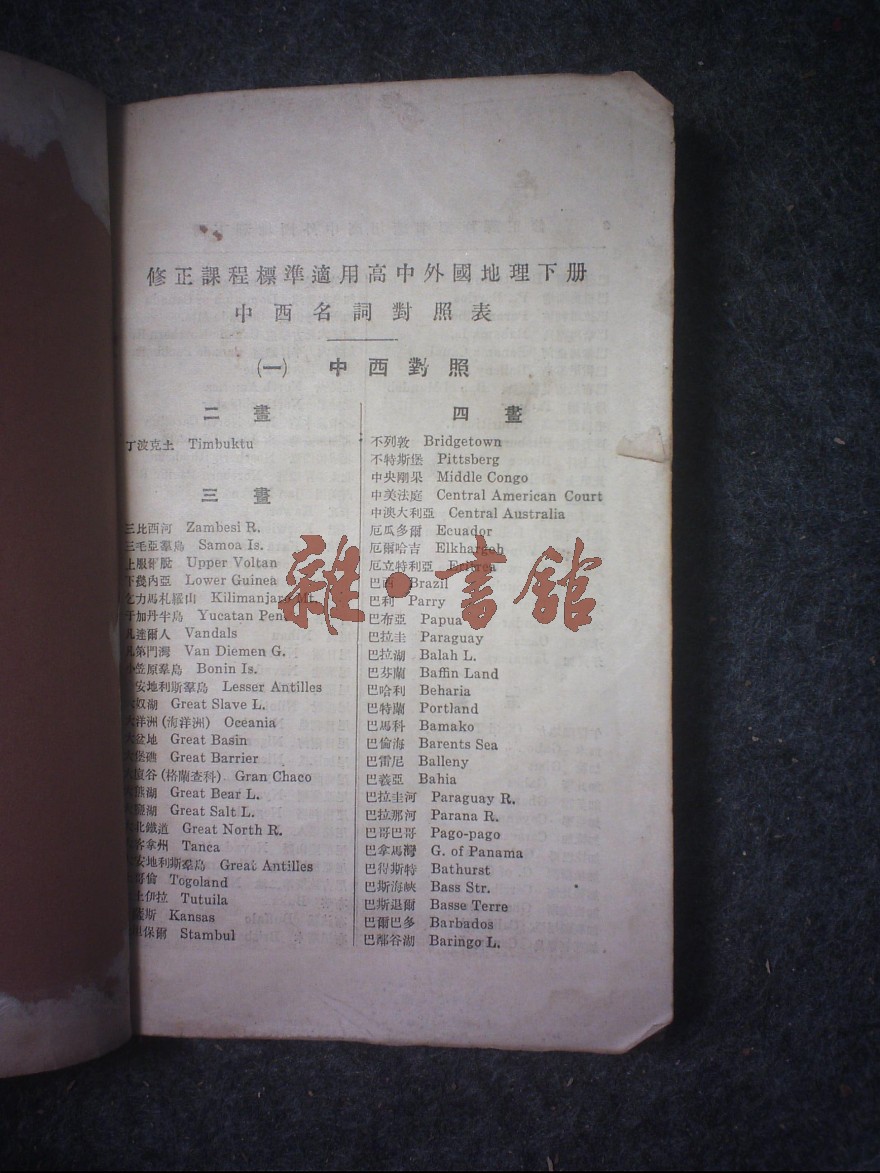 修正課程標準適用高中外國地理下册
中西名詞對照表
(一) 中西對照
二畫
丁波克土 Timbuktu
三畫
三比西河 Zambesi R.
三毛亞羣島 Samoa Is.
上服爾脫 Upper Voltan
下幾內亞 Lower Guinea
乞力馬札羅山 Kilimanjaro Mt.
于加丹半島 Yucatan Pen
凡達爾人 Vandals
凡第門灣 Van Diemen G.
小笠原羣島 Bonin Is.
安地利斯羣島 Lesser Antilles
大奴湖 Great Slave L.
大洋洲(海洋洲) Oceania
大盆地 Great Basin
大堡礁 Great Barrier
(格蘭查科) Gran Chaco
大熊湖 Great Bear L.
大鹽湖 Great Salt L.
大北鐵道 Great North R.
客拿州 Tanca
大安地利斯羣島 Great Antilles
哥倫 Togoland
土伊拉 Tutuila
薩斯 Kansas
坦保爾 Stambul
四畫
不列敦 Bridgetown
不特斯堡 Pittsberg
中央剛果 Middle Congo
中美法庭 Central American Court
中澳大利亞 Central Australia
厄瓜多爾 Ecuador
厄爾哈吉 Elkhargeh
厄立特利亞 Eritrea
巴西 Brazil
巴利 Parry
巴布亞 Papua
巴拉圭 Paraguay
巴拉湖 Balah L.
巴芬蘭 Baffin Land
巴哈利 Beharia
巴特蘭 Portland
巴馬科 Bamako
巴倫海 Barents Sea
巴雷尼 Balleny
巴義亞 Bahia
巴拉圭河 Paraguay R.
巴拉那河 Parana R.
巴哥巴哥 Pago-pago
巴拿馬灣 G. of Panama
巴得斯特 Bathurst
巴斯海峽 Bass Str.
巴斯退爾 Basse Terre
巴爾巴多 Barbados
巴鄰谷湖 Baringo L.
雜·書館